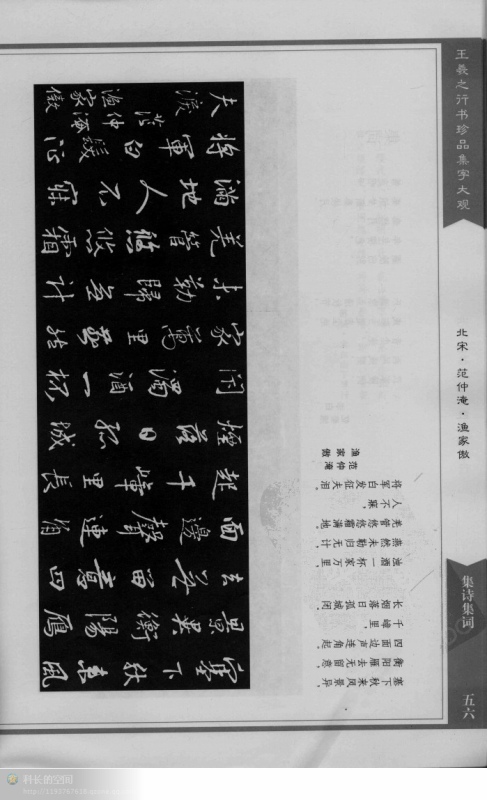 王羲之行书珍品集字大观
北宋·范仲淹·渔家傲
集诗集词
五六
塞下秋来风景异，
衡阳雁去无留意。
四面边声连角起。
千峰里，
长烟落日孤城闭。
浊酒一杯家万里，
燕然未勒归无计
羌管悠悠霜满地。
人不寐，
将军白发征夫泪
范仲淹
渔家傲
塞下秋来風
景異衡陽雁
去无留意四
面邊聲連角
起千峰里長
煙落日孤城
閉濁酒一杯
家萬里燕然
未勒歸無計
羌管悠悠霜
满地人不寐
将軍白髮征
夫淚
范仲淹
渔家傲
科长的空间